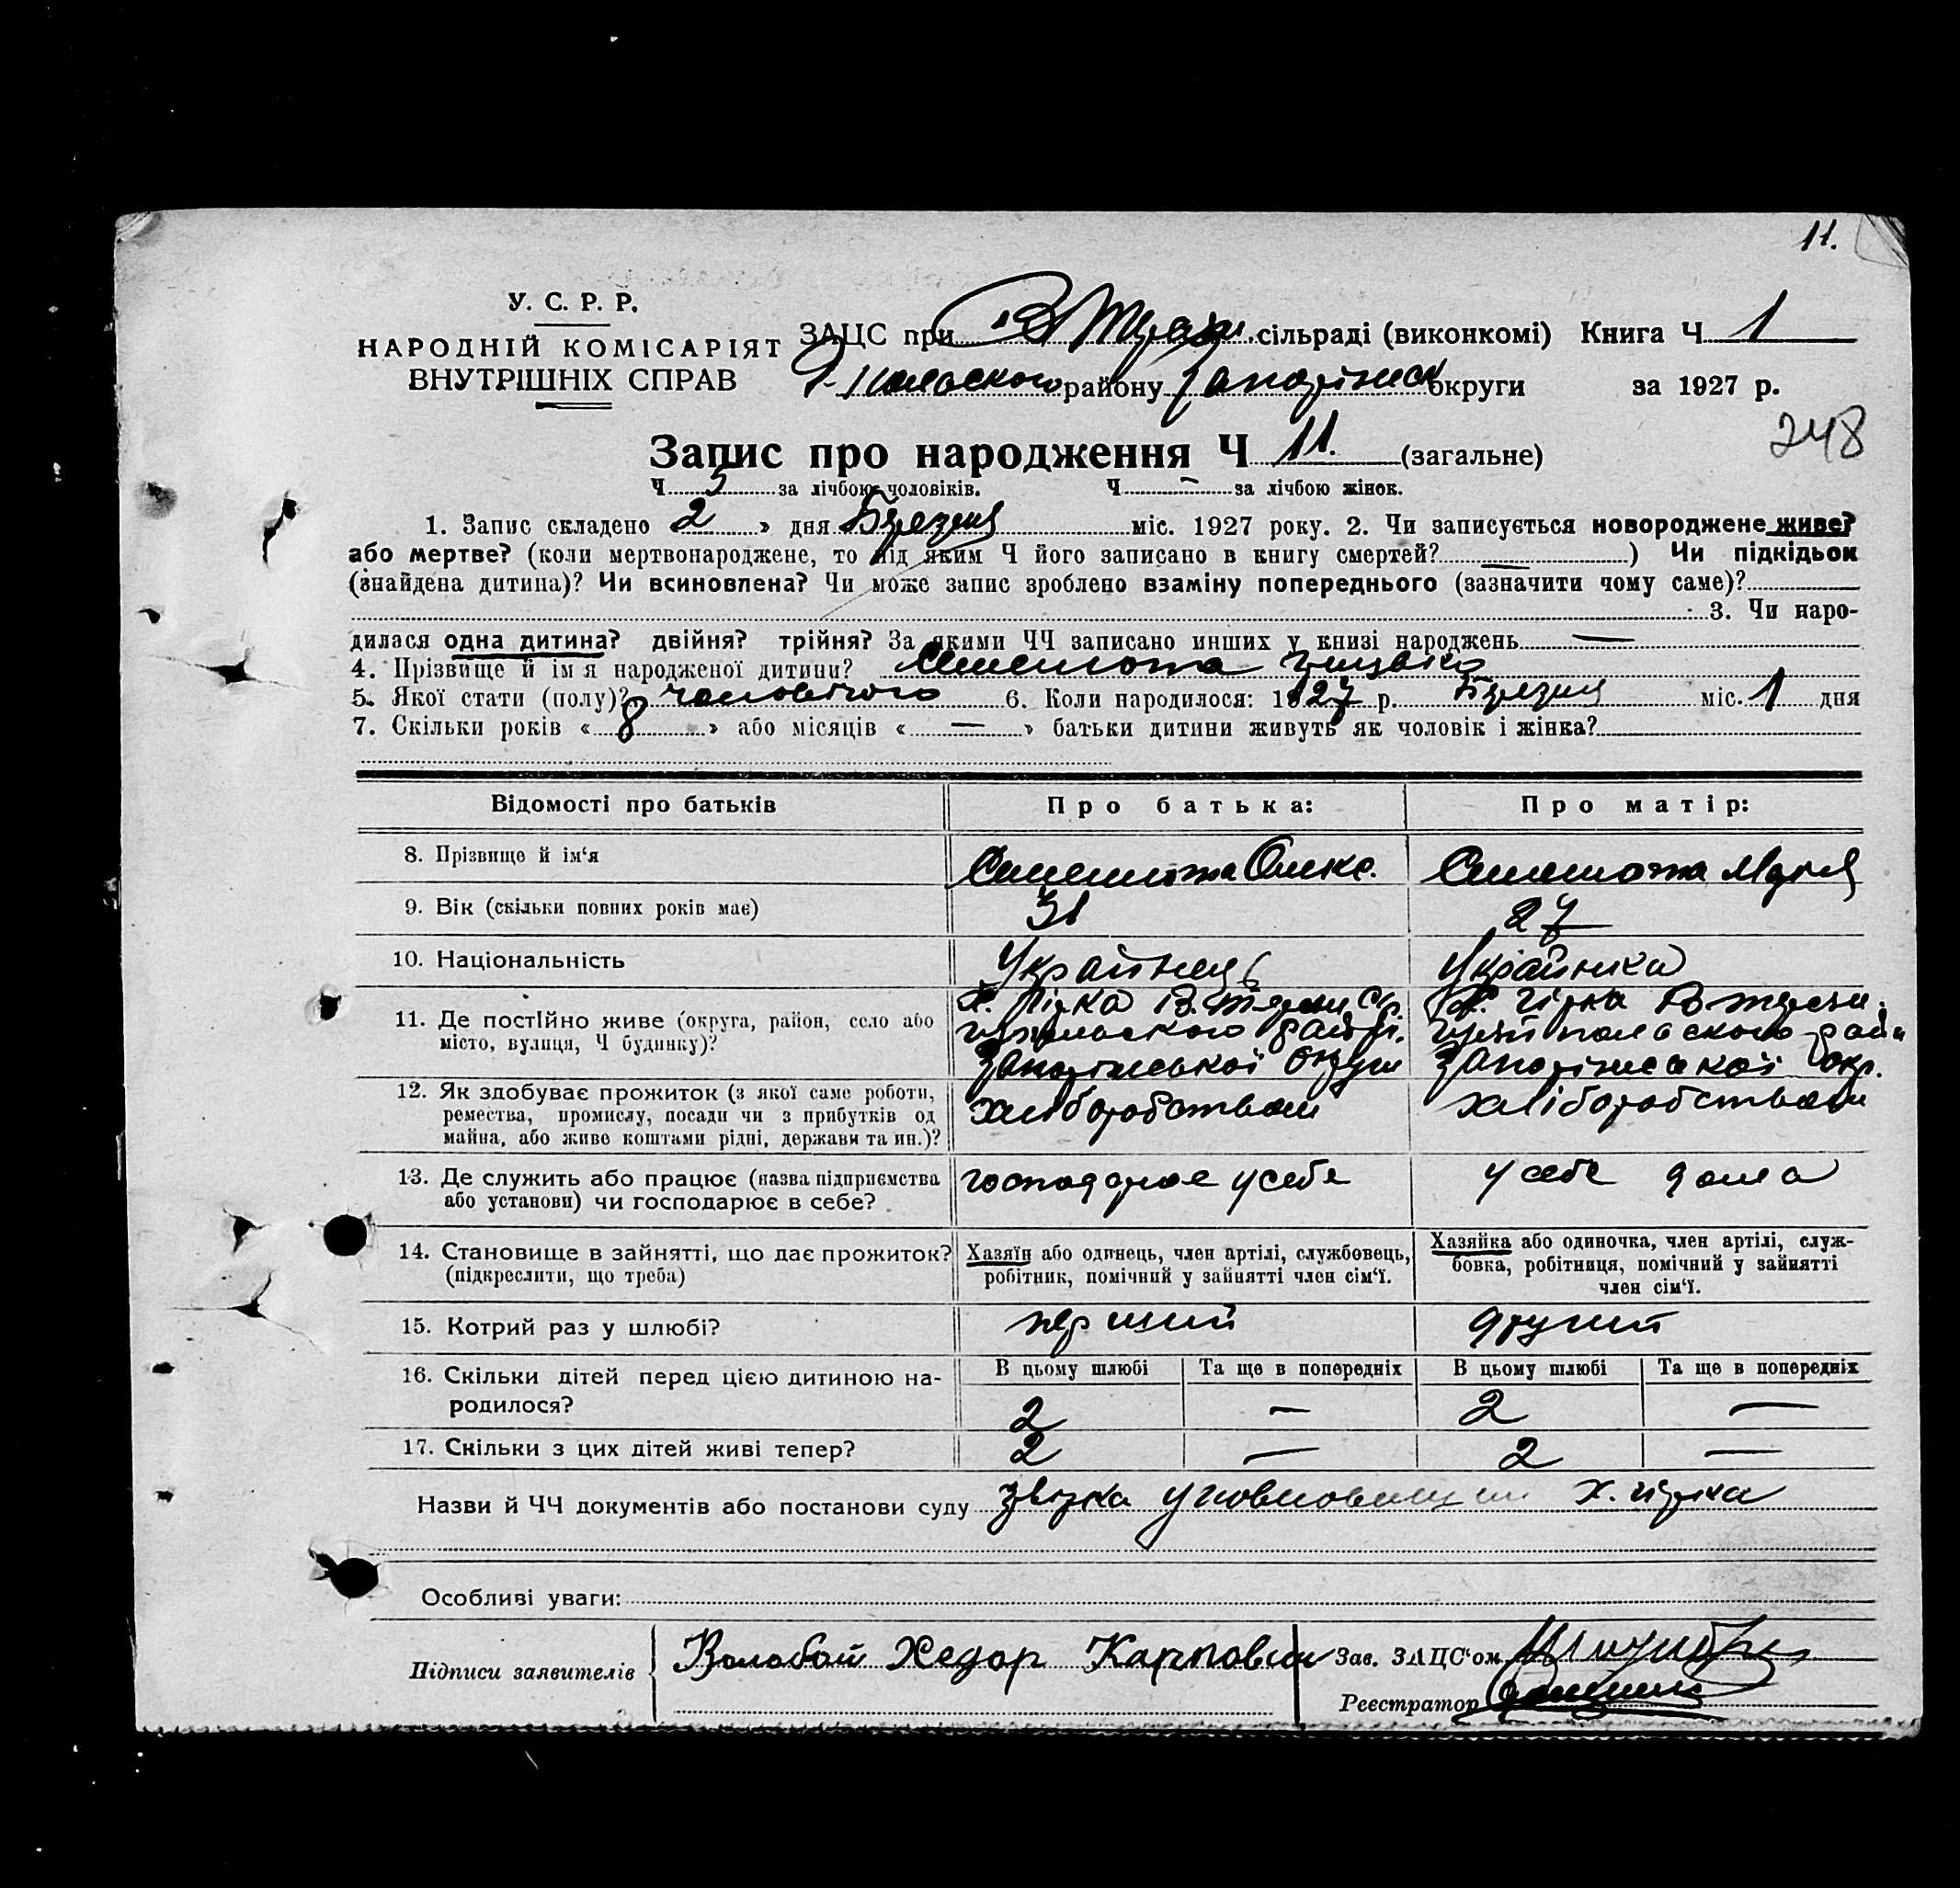 11.
У. С. Р. Р.
НАРОДНІЙ КОМІСАРІЯТ
ВНУТРІШНІХ СПРАВ
ЗАЦС при сільраді (виконкомі) Книга Ч 1
району округи за 1927 р.
248
Запис про народження Ч 11. (загальне)
Ч 5 за лічбою чоловіків. Ч – за лічбою жінок.
1. Запис складено 2 » дня Березня міс. 1927 року. 2. Чи записується новороджене живе?
або мертве? (коли мертвонароджене, то під яким Ч його записано в книгу смертей? — ) Чи підкідьок
(знайдена дитина)? Чи всиновлена? Чи може запис зроблено взаміну попереднього (зазначити чому саме)?
3. Чи наро-
дилася одна дитина? двійня? трійня? За якими ЧЧ записано инших у книзі народжень —
4. Прізвище й ім'я народженої дитини?
5. Якої стати (полу)? чоловічого 6. Коли народилося: 1927 р. Березня міс. 1 дня
7. Скільки років « 8 » або місяців « — » батьки дитини живуть як чоловік і жінка?
Відомості про батьків Про батька: Про матір:
8. Прізвище й ім'я
9. Вік (скільки повних років має) 31 27
10. Національність Українець Українка
11. Де постійно живе (округа, район, село або
місто, вулиця, Ч будинку)?
Запорізської Округи
Запорізської окр.
12. Як здобуває прожиток (з якої саме роботи,
ремества, промислу, посади чи з прибутків од
майна, або живе коштами рідні, держави та ин.)?
хліборобством хліборобством
13. Де служить або працює (назва підприємства
або установи) чи господарює в себе?
господарює у себе у себе дома
14. Становище в зайнятті, що дає прожиток?
(підкреслити, що треба)
Хазяїн або одинець, член артілі, службовець,
робітник, помічний у зайнятті член сім'ї.
Хазяйка або одиночка, член артілі, служ-
бовка, робітниця, помічний у зайнятті
член сім'ї.
15. Котрий раз у шлюбі? перший другий
16. Скільки дітей перед цією дитиною на-
родилося?
В цьому шлюбі Та ще в попередніх В цьому шлюбі Та ще в попередніх
2 — 2 —
17. Скільки з цих дітей живі тепер? 2 — 2 —
Назви й ЧЧ документів або постанови суду
Особливі уваги:
Підписи заявителів Хедор Карпович Зав. ЗАЦС'ом
Реєстратор